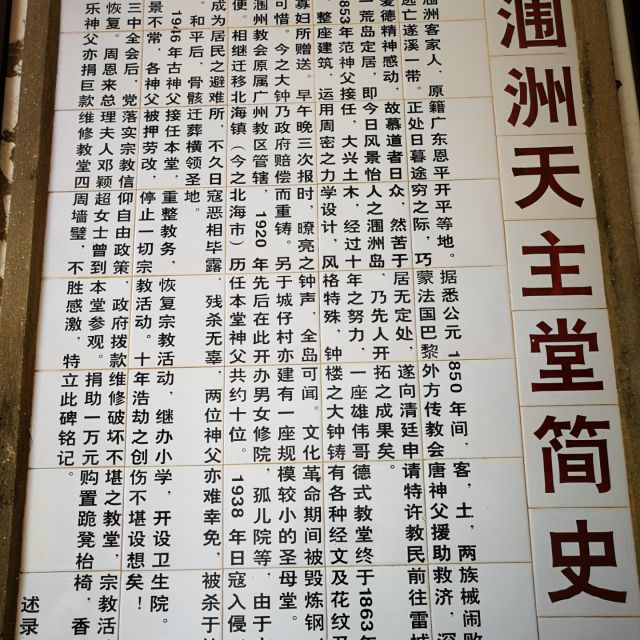 涠洲天主堂简史
涠洲客家人，原籍广东恩平开平等地。据悉公元 1850 年间，客，土，两族械闹败
逃亡遂溪一带。正处日暮途穷之际，巧蒙法国巴黎外方传教会唐神父援助救济，深
爱德精神感动，故慕道者日众，然苦于居无定处，遂向清廷申请特许教民前往雷城
一荒岛定居，即今日风景怡人之涠洲岛，乃先人开拓之成果矣。
1853年范神父接任，大兴土木，经过十年之努力，一座雄伟哥德式教堂终于1863年
整座建筑，运用周密之力学设计，风格特殊，钟楼之大钟铸有各种经文及花纹
寡妇所赠送。早午晚三次报时，嘹亮之钟声，全岛可闻。文化革命期间被毁炼钢，
可惜。今之大钟乃政府赔偿而重铸。另于城仔村亦建有一座规模较小的圣母堂。
涠洲教会原属广州教区管辖，1920 年先后在此开办男女修院，孤儿院等，由于
便。相继迁移北海镇（今之北海市）历任本堂神父共约十位。1938 年日寇入侵
成为居民之避难所，不久日寇恶相毕露，残杀无辜，两位神父亦难幸免，被杀于
和平后，骨骸迁葬横领圣地。
1946年古神父接任本堂，重整教务，恢复宗教活动，继办小学，开设卫生院。
景不常，各神父被押劳改，停止一切宗教活动。十年浩劫之创伤不堪设想矣！
三中全会后，党落实宗教信仰自由政策，政府拨款维修破坏不堪之教堂，宗教活
恢复。周恩来总理夫人邓颖超女士曾到本堂参观。捐助一万元购置跪凳枱椅，香
乐神父亦捐巨款维修教堂四周墙壁，不胜感激，特立此碑铭记。
述录